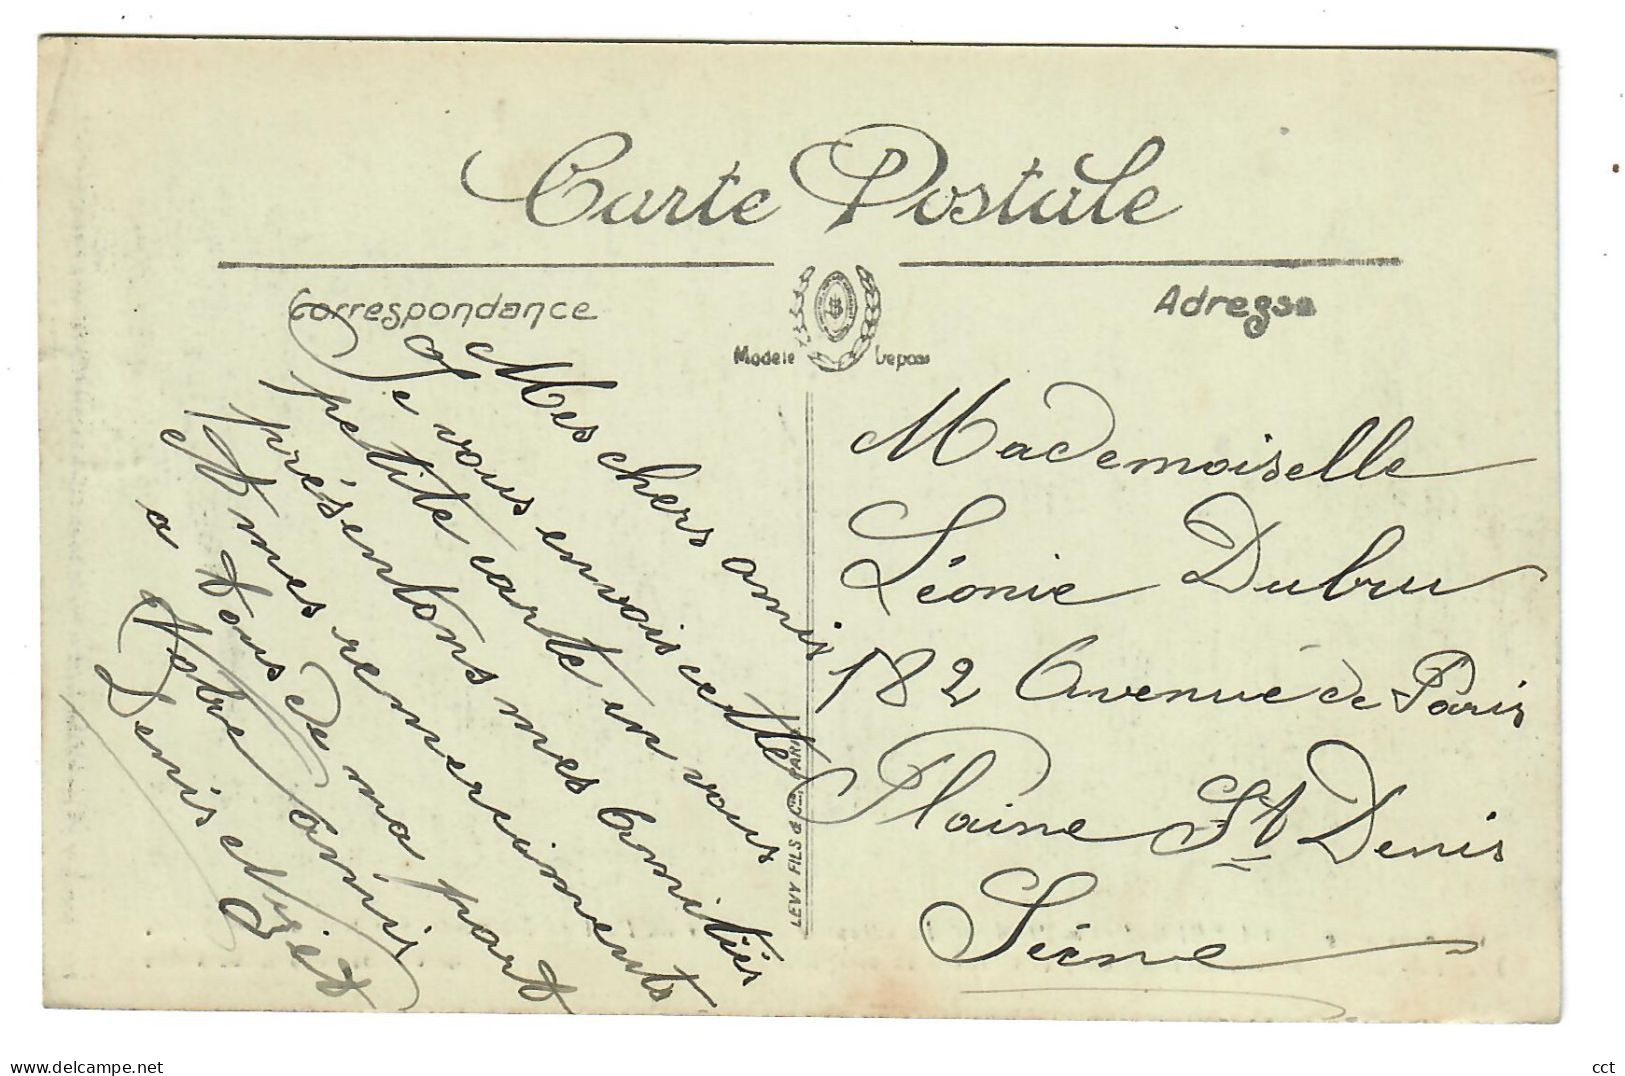 Carte Postale
Correspondance
Adresse
Modèle Déposé
Mes chers amis
Je vous envois cette
petite carte en vous
présentons mes Amitiés
Et mes remerciments
a tous de ma part
Votre amis
Denis
LEVY FILS & Cie, PARIS
Mademoiselle
Léonie Dubru
182 Avenue de Paris
Plaine St Denis
Seine
cct